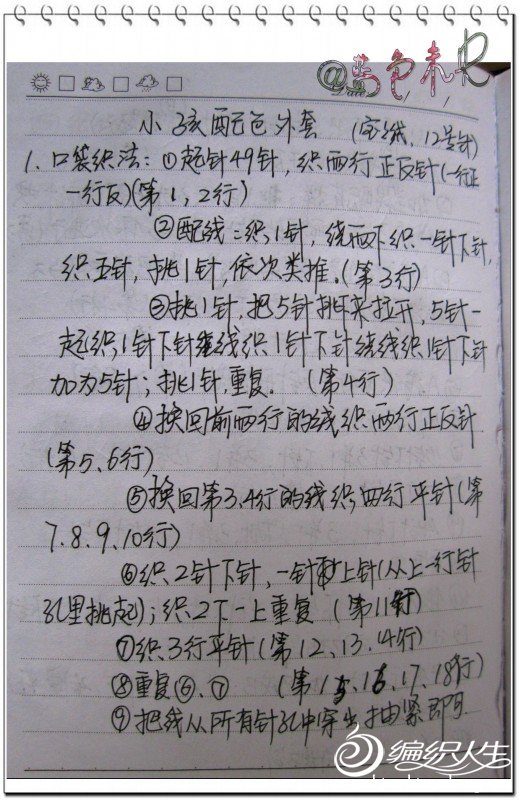 @蓝色未来
Date
小孩配色外套 (宝绒、12号针)
1、口袋织法：①起针49针，织两行正反针(一行正
一行反)(第1，2行)
②配线：织1针，绕两下织一针下针，
织五针，挑1针，依次类推。(第3行)
③挑1针，把5针挑来拉开，5针一
起织1针下针绕线织1针下针绕线织1针下针
加为5针；挑1针，重复。 (第4行)
④换回前两行的线织两行正反针
(第5、6行)
⑤换回第3.4行的线织四行平针(第
7.8.9.10行)
⑥织2针下针，一针上针(从上一行针
孔里挑起)；织2下一上重复 (第11行)
⑦织3行平针(第12、13、14行)
⑧重复⑥、⑦ (第15、16、17、18行)
⑨把线从所有针孔中穿出抽紧即可
编织人生